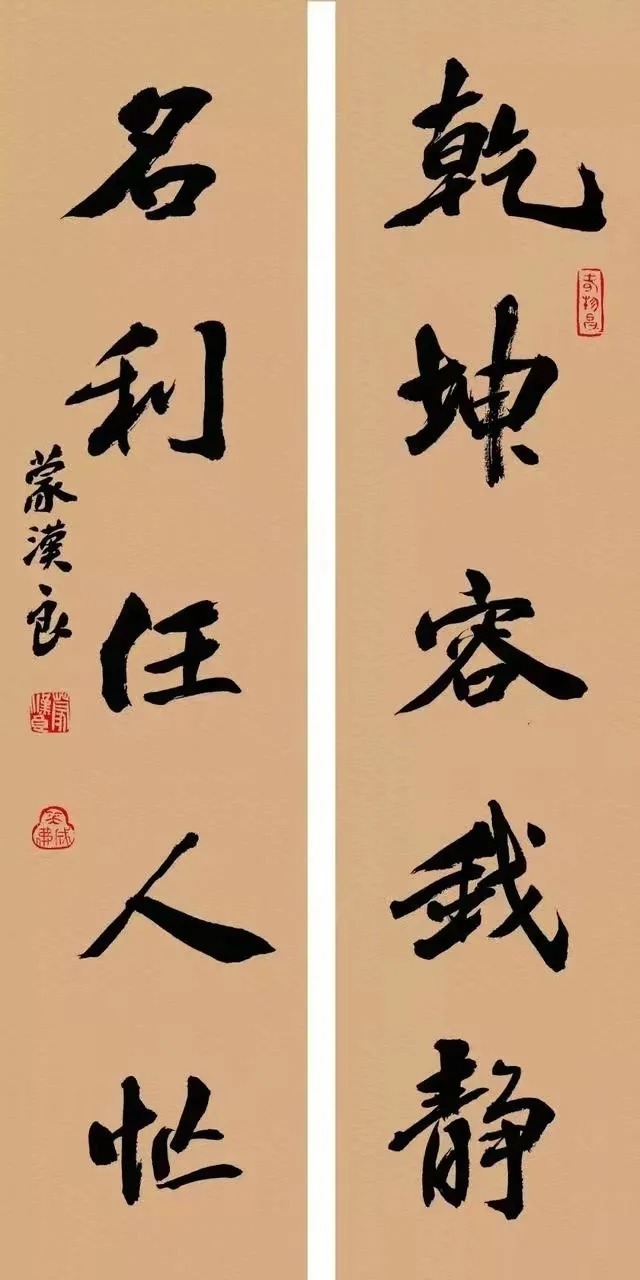 乾坤容我静
名利任人忙
蒙漢良